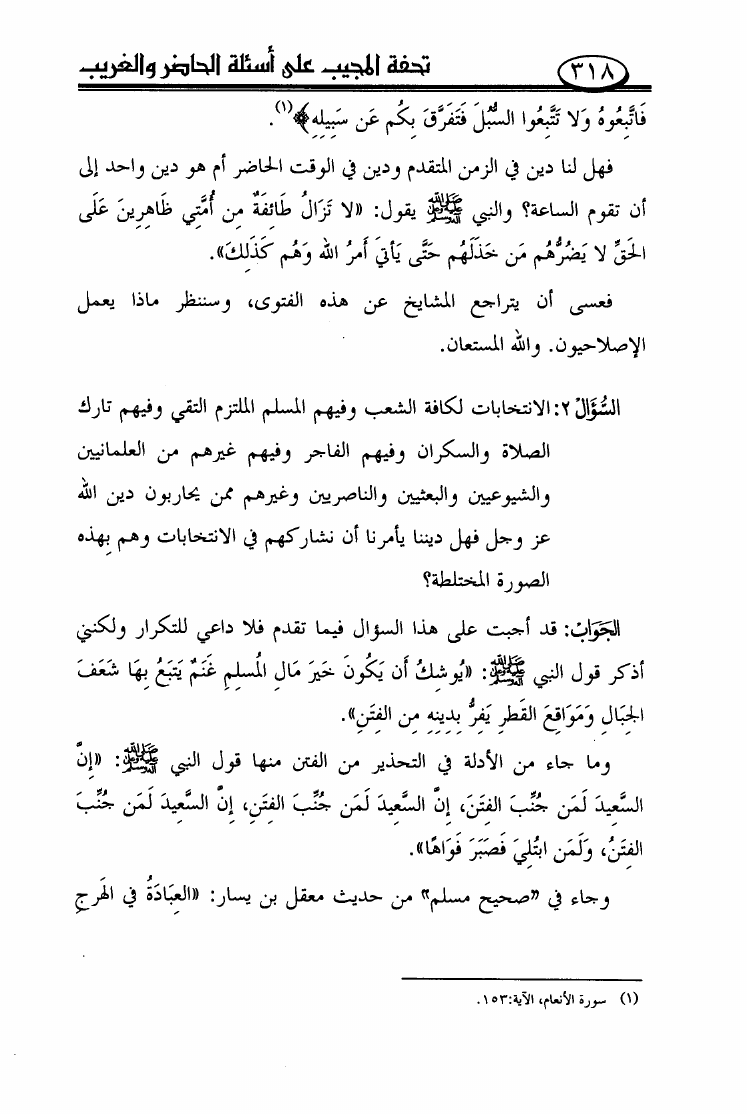 ٣١٨ تحفة المجيب على أسئلة الحاضر والغريب
فَاتَّبِعُوهُ وَلا تَتَّبِعُوا السُّبُلَ فَتَفَرَّقَ بِكُم عَن سَبِيلِهِ﴾(١).
فهل لنا دين في الزمن المتقدم ودين في الوقت الحاضر أم هو دين واحد إلى
أن تقوم الساعة؟ والنبي ﷺ يقول: «لا تَزَالُ طَائِفَةٌ مِن أُمَّتِي ظَاهِرِينَ عَلَى
الحَقِّ لا يَضُرُّهُم مَن خَذَلَهُم حَتَّى يَأتِيَ أَمرُ الله وَهُم كَذَلِكَ».
فعسى أن يتراجع المشايخ عن هذه الفتوى، وسننظر ماذا يعمل
الإصلاحيون. والله المستعان.
السُّؤَالُ ٢: الانتخابات لكافة الشعب وفيهم المسلم الملتزم التقي وفيهم تارك
الصلاة والسكران وفيهم الفاجر وفيهم غيرهم من العلمانيين
والشيوعيين والبعثيين والناصريين وغيرهم ممن يحاربون دين الله
عز وجل فهل ديننا يأمرنا أن نشاركهم في الانتخابات وهم بهذه
الصورة المختلطة؟
الجَوَابُ: قد أجبت على هذا السؤال فيما تقدم فلا داعي للتكرار ولكنني
أذكر قول النبي ﷺ: «يُوشِكُ أَن يَكُونَ خَيرَ مَالِ المُسلِمِ غَنَمٌ يَتبَعُ بِهَا شَعَفَ
الجِبَالِ وَمَوَاقِعَ القَطرِ يَفِرُّ بِدِينِهِ مِن الفِتَنِ».
وما جاء من الأدلة في التحذير من الفتن منها قول النبي ﷺ: «إِنَّ
السَّعِيدَ لَمَن جُنِّبَ الفِتَنَ، إِنَّ السَّعِيدَ لَمَن جُنِّبَ الفِتَنِ، إِنَّ السَّعِيدَ لَمَن جُنِّبَ
الفِتَنُ، وَلَمَن ابتُلِيَ فَصَبَرَ فَوَاهًا».
وجاء في "صحيح مسلم" من حديث معقل بن يسار: «العِبَادَةُ في الهَرجِ
(١) سورة الأنعام، الآية:١٥٣.